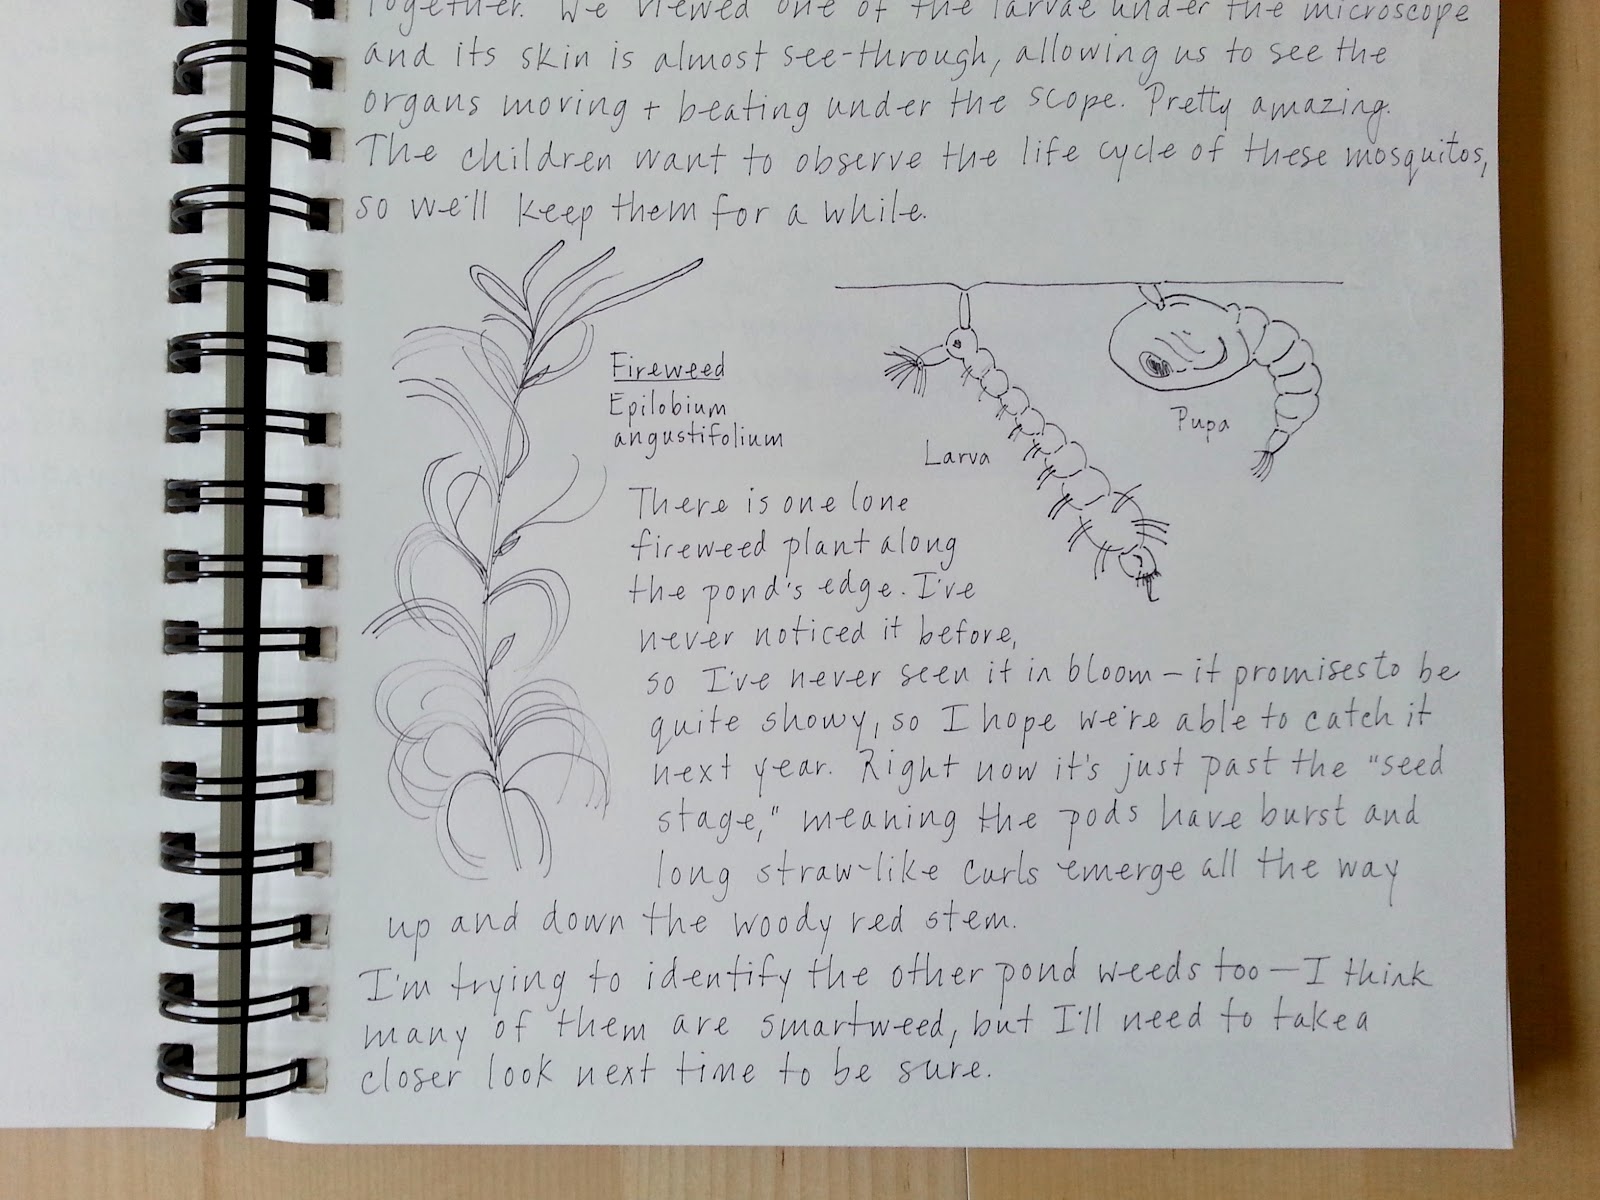 together. We viewed one of the larvae under the microscope
and its skin is almost see-through, allowing us to see the
organs moving + beating under the scope. Pretty amazing.
The children want to observe the life cycle of these mosquitos,
so we'll keep them for a while.
Fireweed
Epilobium
angustifolium
Larva
Pupa
There is one lone
fireweed plant along
the pond's edge. I've
never noticed it before,
so I've never seen it in bloom – it promises to be
quite showy, so I hope we're able to catch it
next year. Right now it's just past the "seed
stage," meaning the pods have burst and
long straw-like curls emerge all the way
up and down the woody red stem.
I'm trying to identify the other pond weeds too – I think
many of them are smartweed, but I'll need to take a
closer look next time to be sure.